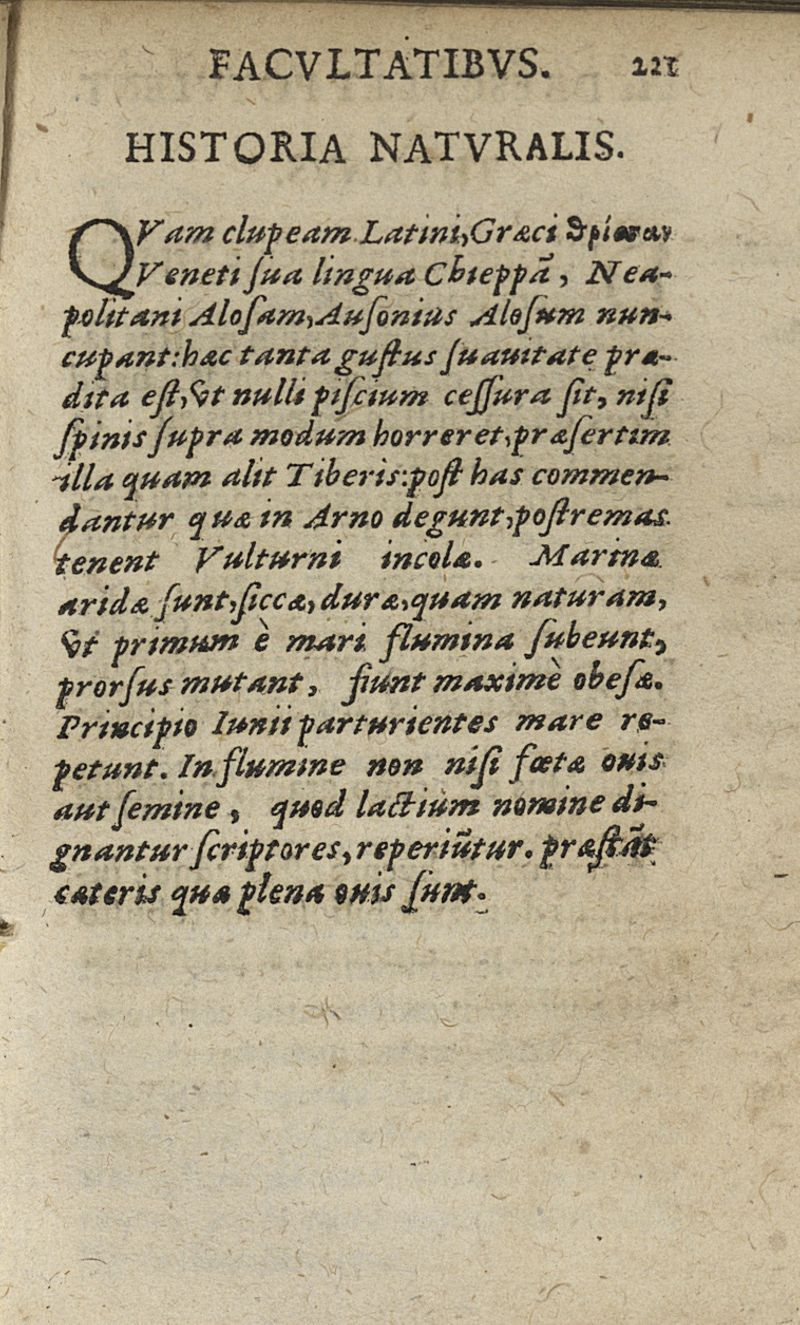 FACVLTATIBVS. 221
HISTORIA NATVRALIS.
QVam clupeam Latini, Græci
Veneti ſua lingua Chieppã, Nea-
politani Aloſam, Auſonius Aloſum nun-
cupant: hæc tanta guſtus ſuauitate præ-
dita eſt, vt nulli piſcium ceſſura ſit, niſi
ſpinis ſupra modum horreret, præſertim
illa quam alit Tiberis: poſt has commen-
dantur quæ in Arno degunt, poſtremas
tenent Vulturni incolæ. Marinæ
aridæ ſunt, ſiccæ, duræ, quam naturam,
vt primum è mari flumina ſubeunt,
prorſus mutant, fiunt maximè obeſæ.
Principio Iunii parturientes mare re-
petunt. In flumine non niſi fœtæ ouis
aut ſemine, quod lactium nomine di-
gnantur ſcriptores, reperiũtur. præſtãt
cæteris quæ plena ouis ſunt.